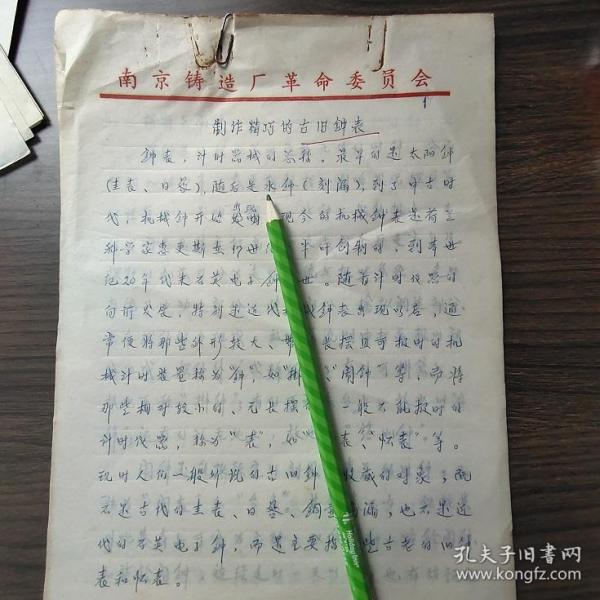 南京铸造厂革命委员会
1
制作精巧的古旧钟表
钟表,计时器械的总称。最早的是太阳钟
(圭表、日晷),随后是水钟(刻漏),到了中古时
代,机械钟开始 现今的机械钟表是荷兰
科学家惠更斯在 世 半叶创制的,到本世
纪20年代末石英电子钟 世。随着计时仪器的
向前发展,特别是近代 钟表出现以后,通
常便将那些外形较大、带 装摆且可报时的机
械计时装置称为"钟",如" "、闹钟 等,而将
那些相对较小的、无长摆 一般不能报时的
计时仪器,称为"表",如" 表、怀表"等。
现时人们一般所说的古旧钟 收藏的对象,既
不是古代的圭表、日晷、铜壶 漏,也不是近
代的石英电子钟,而是主要指 些古老的旧钟
表和怀表。
孔夫子旧书网
www.kongfz.com